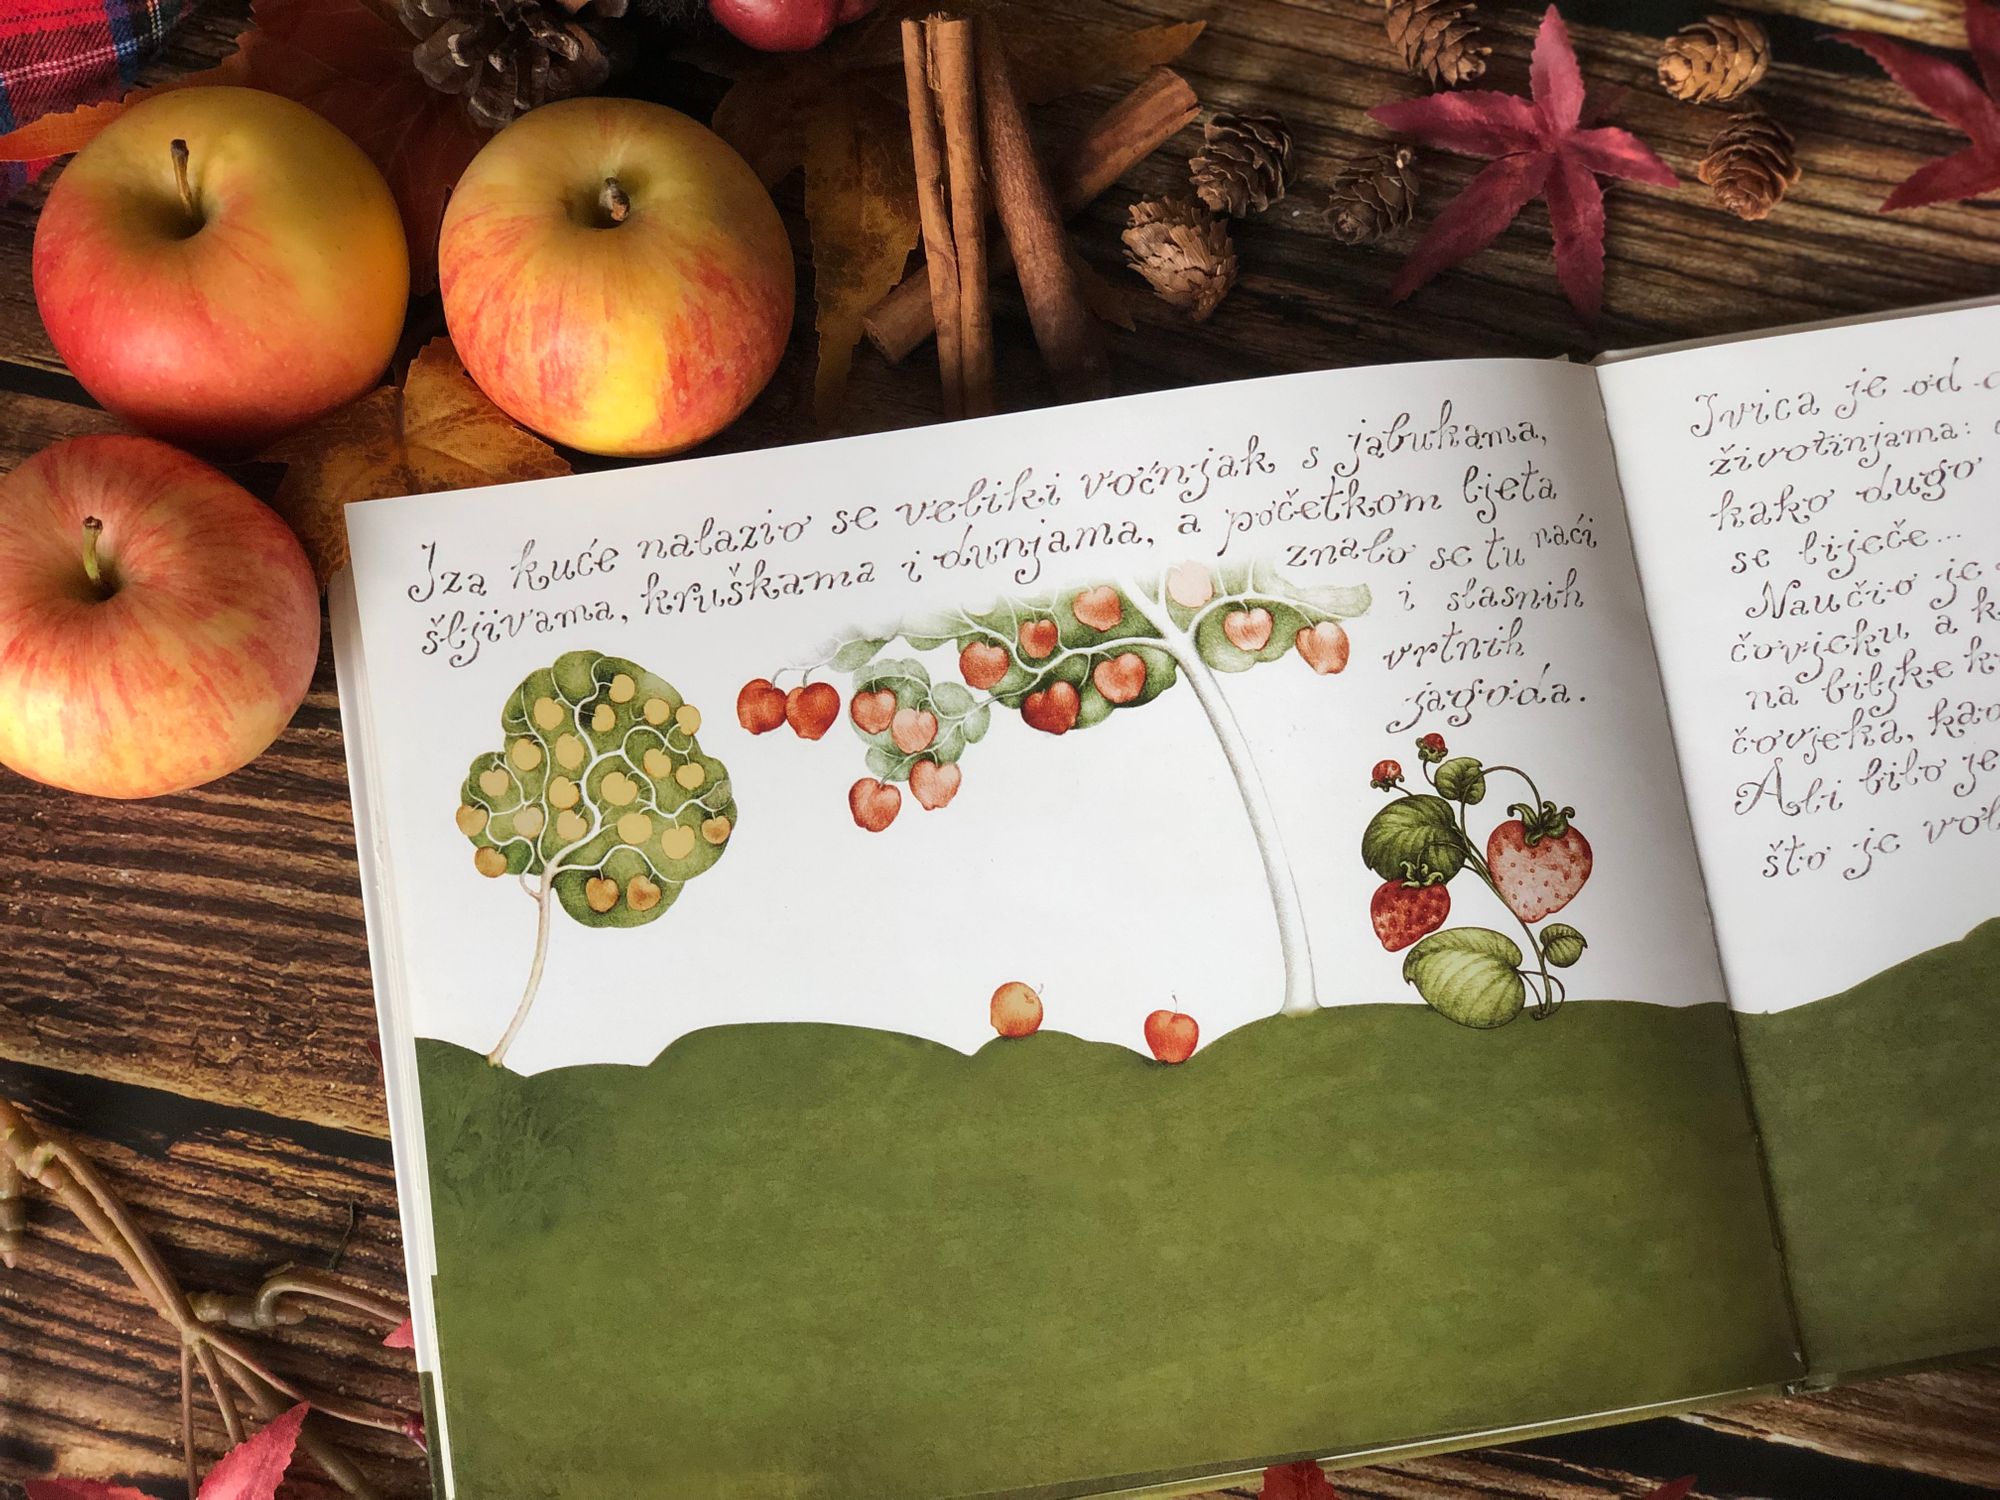 Iza kuće nalazio se veliki voćnjak s jabukama,
šljivama, kruškama i dunjama, a početkom ljeta
znalo se tu naći
i slasnih
vrtnih
jagoda.
Ivica je od
životinjama:
kako dugo
se liječe...
Naučio je
čovjeku a
na biljke
čovjeka, kao
Ali bilo je
što je